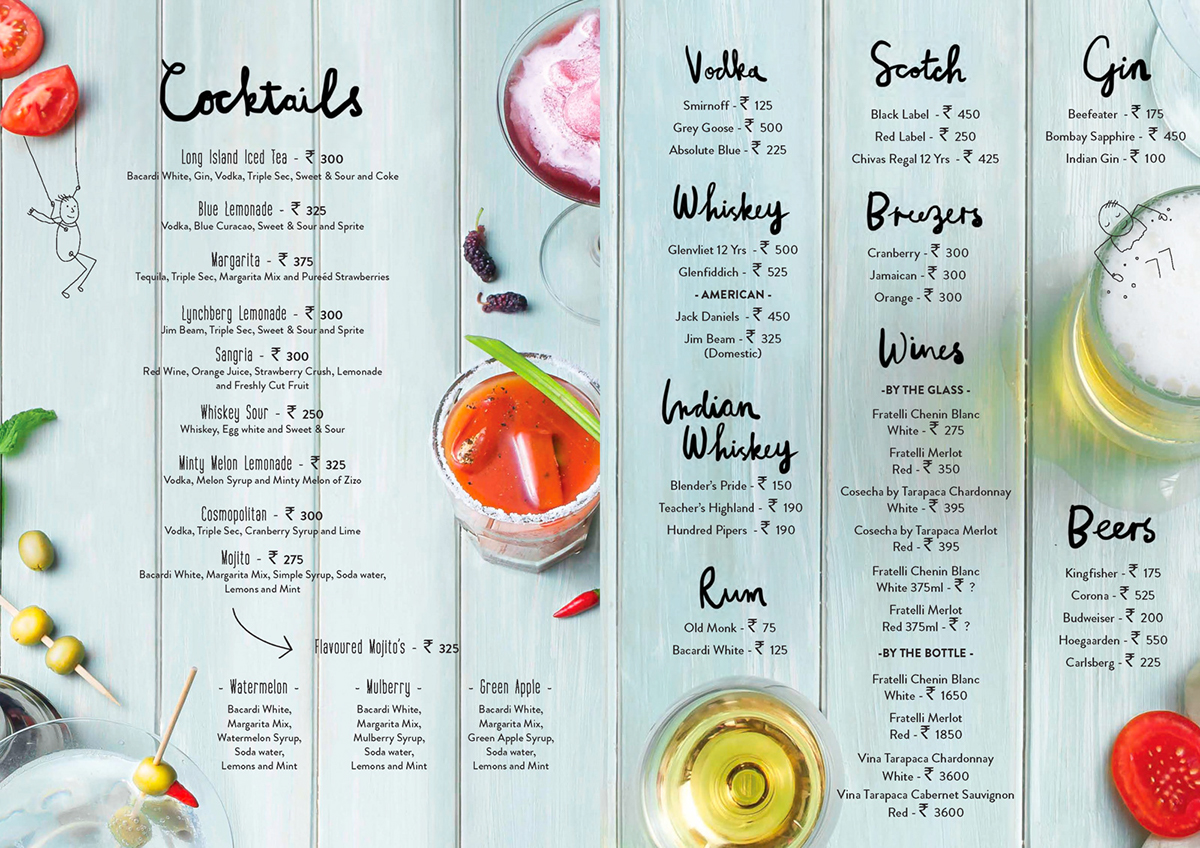 Cocktails
Long Island Iced Tea - ₹ 300
Bacardi White, Gin, Vodka, Triple Sec, Sweet & Sour and Coke
Blue Lemonade - ₹ 325
Vodka, Blue Curacao, Sweet & Sour and Sprite
Margarita - ₹ 375
Tequila, Triple Sec, Margarita Mix and Pureéd Strawberries
Lynchberg Lemonade - ₹ 300
Jim Beam, Triple Sec, Sweet & Sour and Sprite
Sangria - ₹ 300
Red Wine, Orange Juice, Strawberry Crush, Lemonade
and Freshly Cut Fruit
Whiskey Sour - ₹ 250
Whiskey, Egg white and Sweet & Sour
Minty Melon Lemonade - ₹ 325
Vodka, Melon Syrup and Minty Melon of Zizo
Cosmopolitan - ₹ 300
Vodka, Triple Sec, Cranberry Syrup and Lime
Mojito - ₹ 275
Bacardi White, Margarita Mix, Simple Syrup, Soda water,
Lemons and Mint
Flavoured Mojito's - ₹ 325
- Watermelon -
Bacardi White,
Margarita Mix,
Watermelon Syrup,
Soda water,
Lemons and Mint
- Mulberry -
Bacardi White,
Margarita Mix,
Mulberry Syrup,
Soda water,
Lemons and Mint
- Green Apple -
Bacardi White,
Margarita Mix,
Green Apple Syrup,
Soda water,
Lemons and Mint
Vodka
Smirnoff - ₹ 125
Grey Goose - ₹ 500
Absolute Blue - ₹ 225
Whiskey
Glenvliet 12 Yrs - ₹ 500
Glenfiddich - ₹ 525
- AMERICAN -
Jack Daniels - ₹ 450
Jim Beam - ₹ 325
(Domestic)
Indian
Whiskey
Blender's Pride - ₹ 150
Teacher's Highland - ₹ 190
Hundred Pipers - ₹ 190
Rum
Old Monk - ₹ 75
Bacardi White - ₹ 125
Scotch
Black Label - ₹ 450
Red Label - ₹ 250
Chivas Regal 12 Yrs - ₹ 425
Breezers
Cranberry - ₹ 300
Jamaican - ₹ 300
Orange - ₹ 300
Wines
-BY THE GLASS -
Fratelli Chenin Blanc
White - ₹ 275
Fratelli Merlot
Red - ₹ 350
Cosecha by Tarapaca Chardonnay
White - ₹ 395
Cosecha by Tarapaca Merlot
Red - ₹ 395
Fratelli Chenin Blanc
White 375ml - ₹ ?
Fratelli Merlot
Red 375ml - ₹ ?
-BY THE BOTTLE -
Fratelli Chenin Blanc
White - ₹ 1650
Fratelli Merlot
Red - ₹ 1850
Vina Tarapaca Chardonnay
White - ₹ 3600
Vina Tarapaca Cabernet Sauvignon
Red - ₹ 3600
Gin
Beefeater - ₹ 175
Bombay Sapphire - ₹ 450
Indian Gin - ₹ 100
Beers
Kingfisher - ₹ 175
Corona - ₹ 525
Budweiser - ₹ 200
Hoegaarden - ₹ 550
Carlsberg - ₹ 225